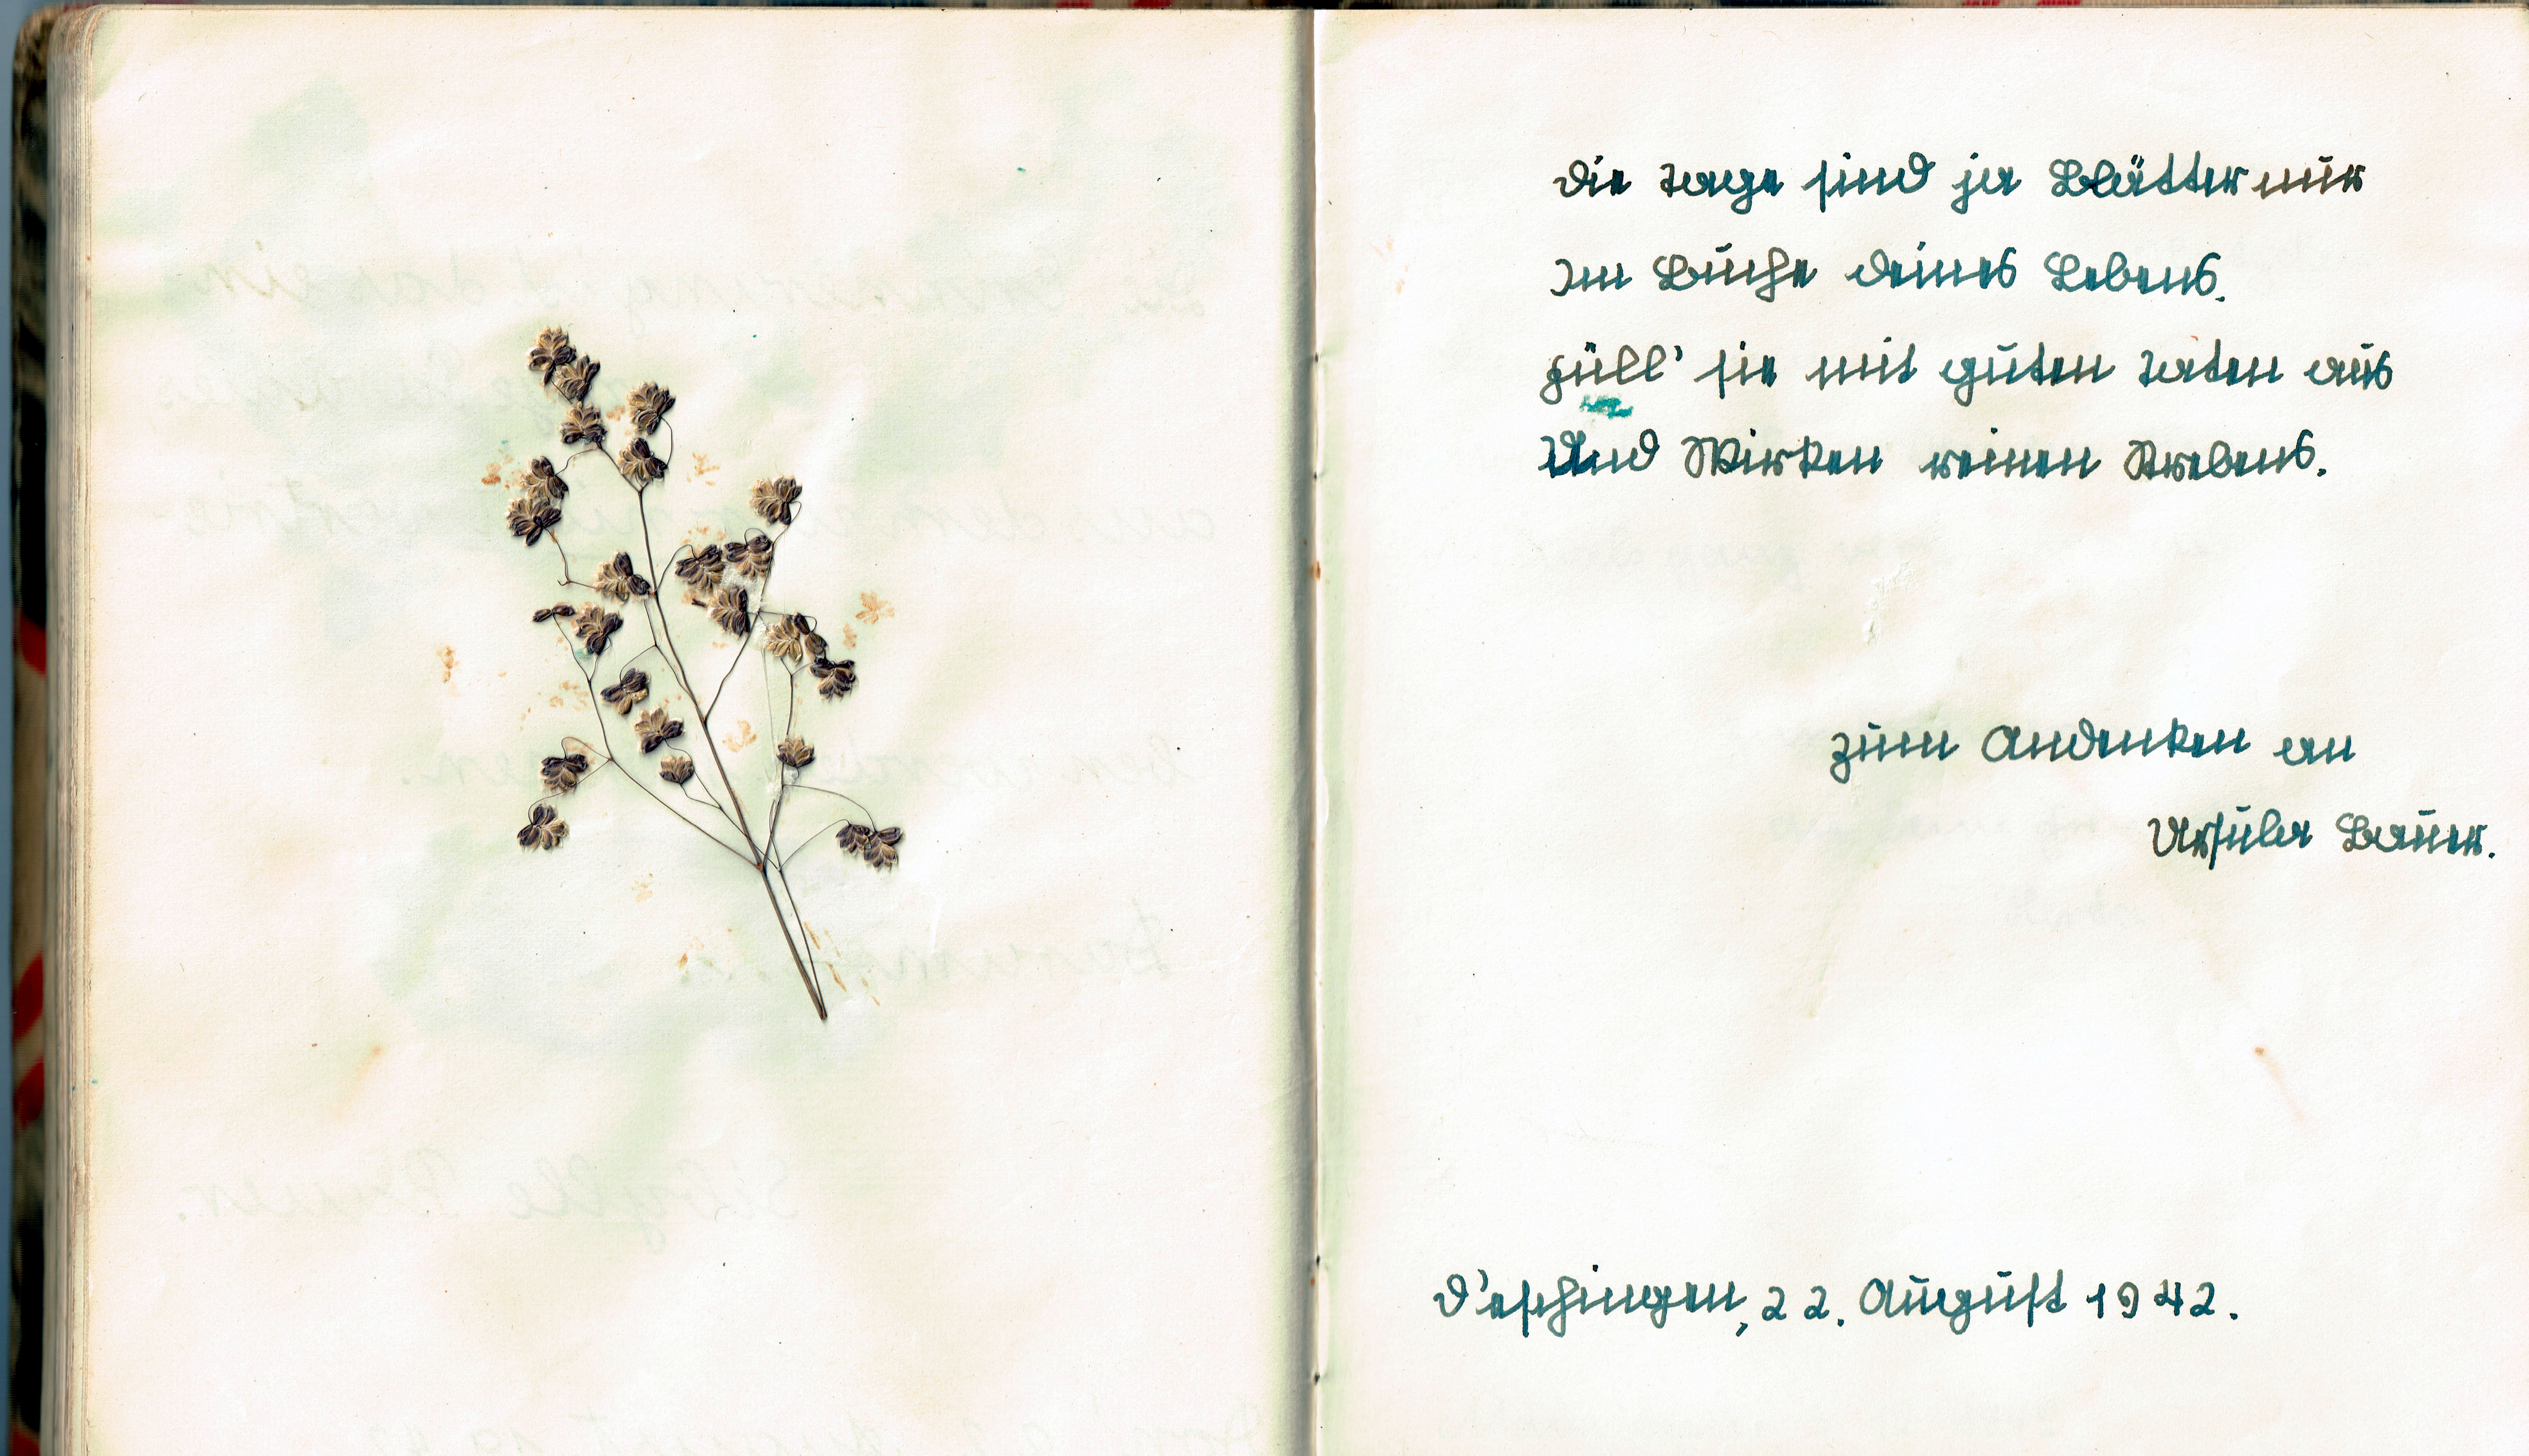 Die Tage sind ja Blätter nur
Im Buche deines Lebens.
Füll' sie mit guten Taten aus
Und Wirken reinen Strebens.
Zum Andenken an
Ursula Bauer.
D'eschingen, 22. August 1942.